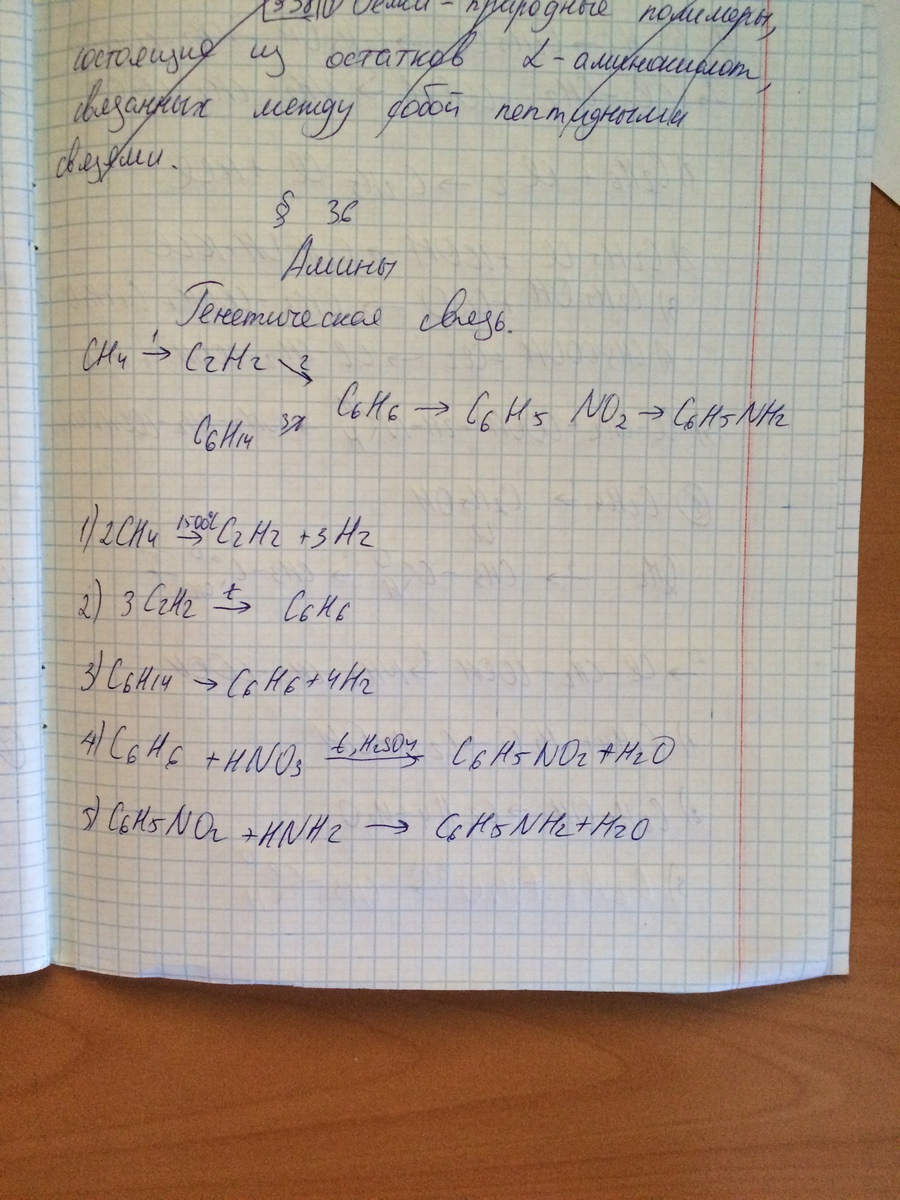 Белки - природные полимеры,
состоящие из остатков α-аминокислот,
связанных между собой пептидными
связями.
§ 36
Амины
Генетическая связь.
CH4 →1 C2H2 ↘2
C6H6 → C6H5 NO2 → C6H5NH2
C6H14 3↗
1) 2CH4 1500°C→ C2H2 + 3H2
2) 3C2H2 t→ C6H6
3) C6H14 → C6H6 + 4H2
4) C6H6 + HNO3 t, H2SO4→ C6H5NO2 + H2O
5) C6H5NO2 + HNH2 → C6H5NH2 + H2O